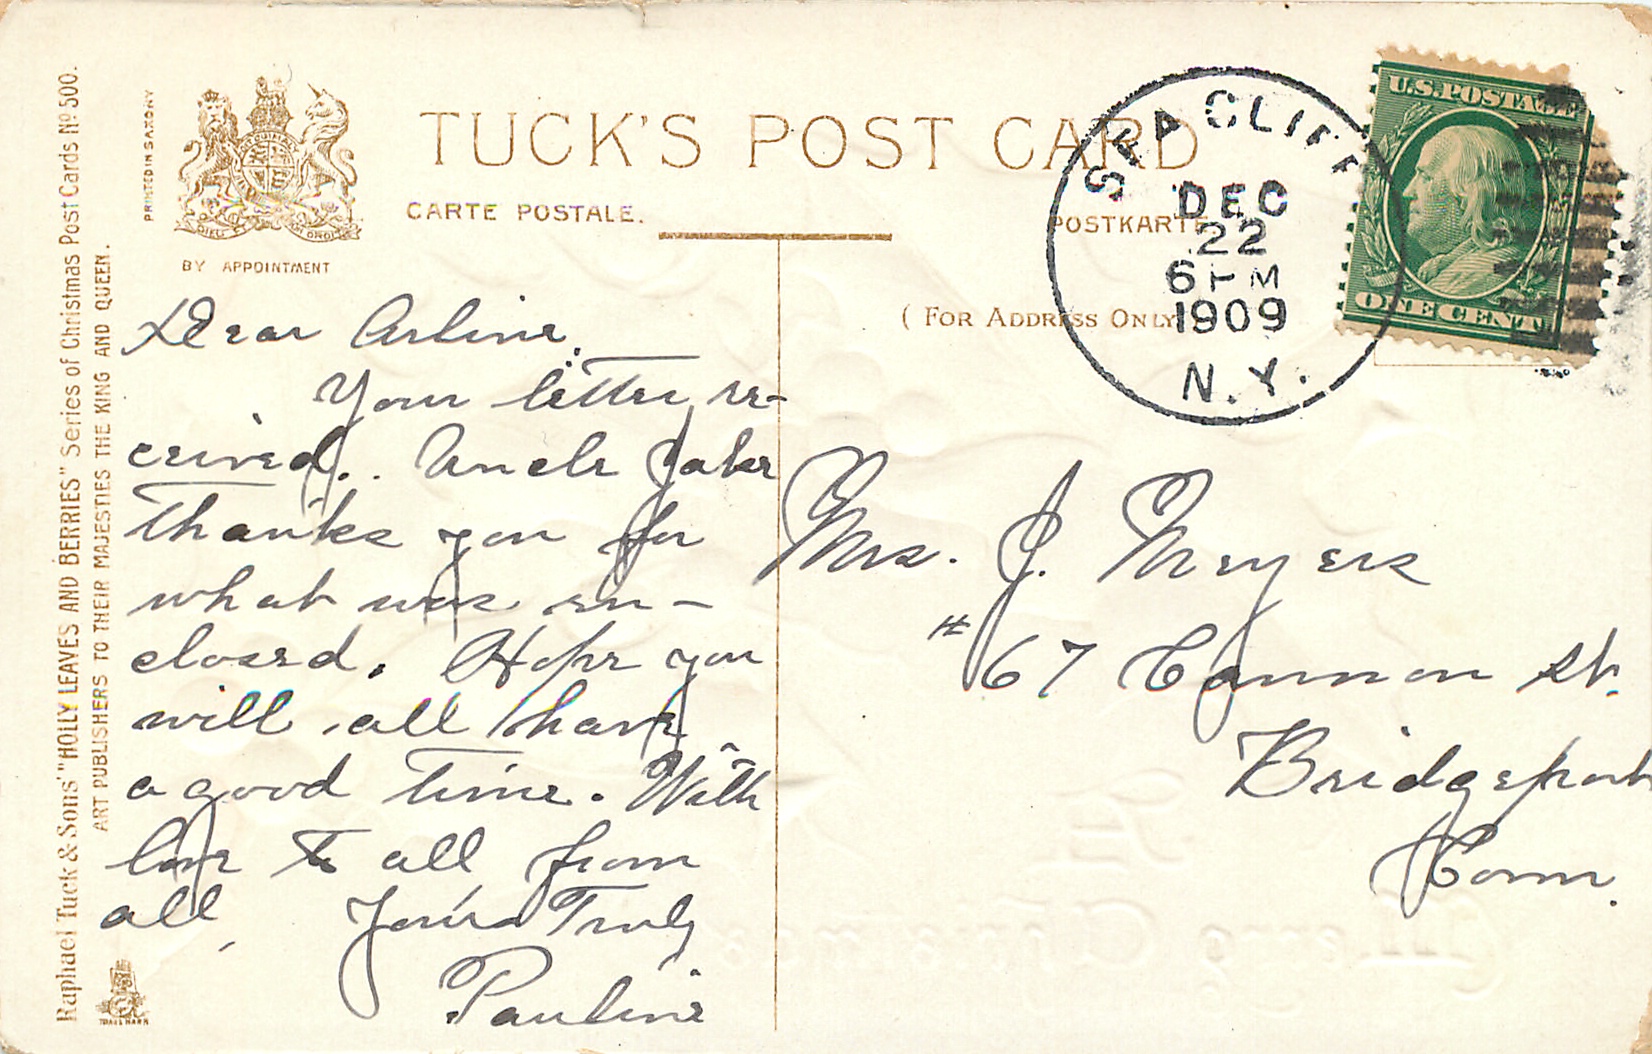 Raphael Tuck & Sons' "HOLLY LEAVES AND BERRIES" Series of Christmas Post Cards Nº 500.
ART PUBLISHERS TO THEIR MAJESTIES THE KING AND QUEEN.
PRINTED IN SAXONY
BY APPOINTMENT
TUCK'S POST CARD
CARTE POSTALE.
POSTKARTE
(FOR ADDRESS ONLY
SEA CLIFF
DEC
22
6 PM
1909
N.Y.
U.S. POSTAGE
ONE CENT
Dear Arline.
Your letter re-
ceived. Uncle Jake
thanks you for
what was en-
closed. Hope you
will all have
a good time. With
love to all from
all, Yours Truly
Pauline
Mrs. J. Meyers
#67 Cannon St.
Bridgeport
Conn.
A
Merry Christmas